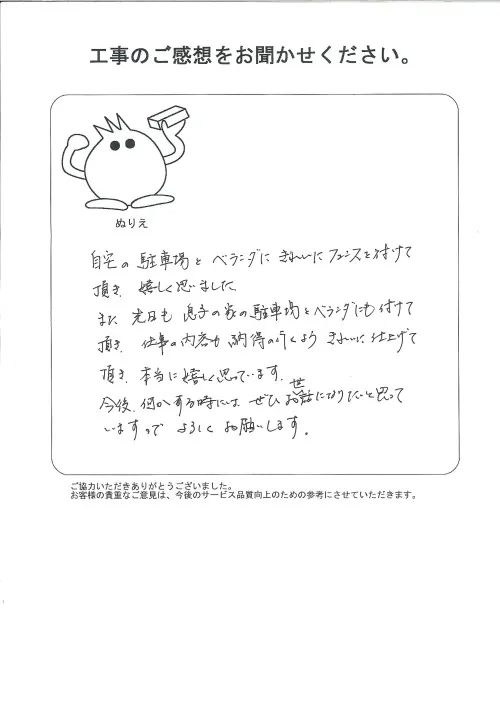 工事のご感想をお聞かせください。
ぬりえ
自宅の駐車場とベランダにきれいにフェンスを付けて
頂き、嬉しく思いました。
また、先日も息子の家の駐車場とベランダにも付けて
頂き、仕事の内容も納得の行くようきれいに仕上げて
頂き、本当に嬉しく思っています。
今後、何かする時にはぜひお世話になりたいと思って
いますので よろしくお願いします。
ご協力いただきありがとうございました。
お客様の貴重なご意見は、今後のサービス品質向上のための参考にさせていただきます。